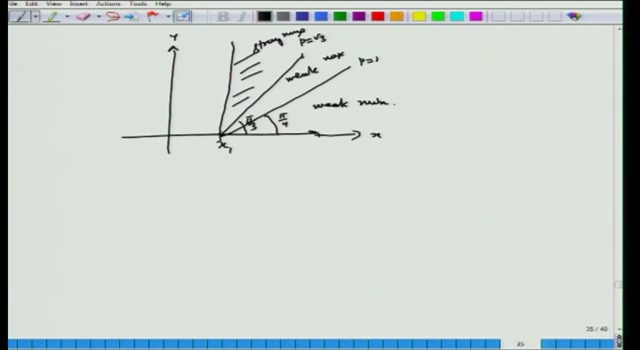 File Edit View Insert Actions Tools Help
y
strong max
p=√3
weak max
p=1
weak min.
π/3
π/4
x₁
x
35 / 40
35